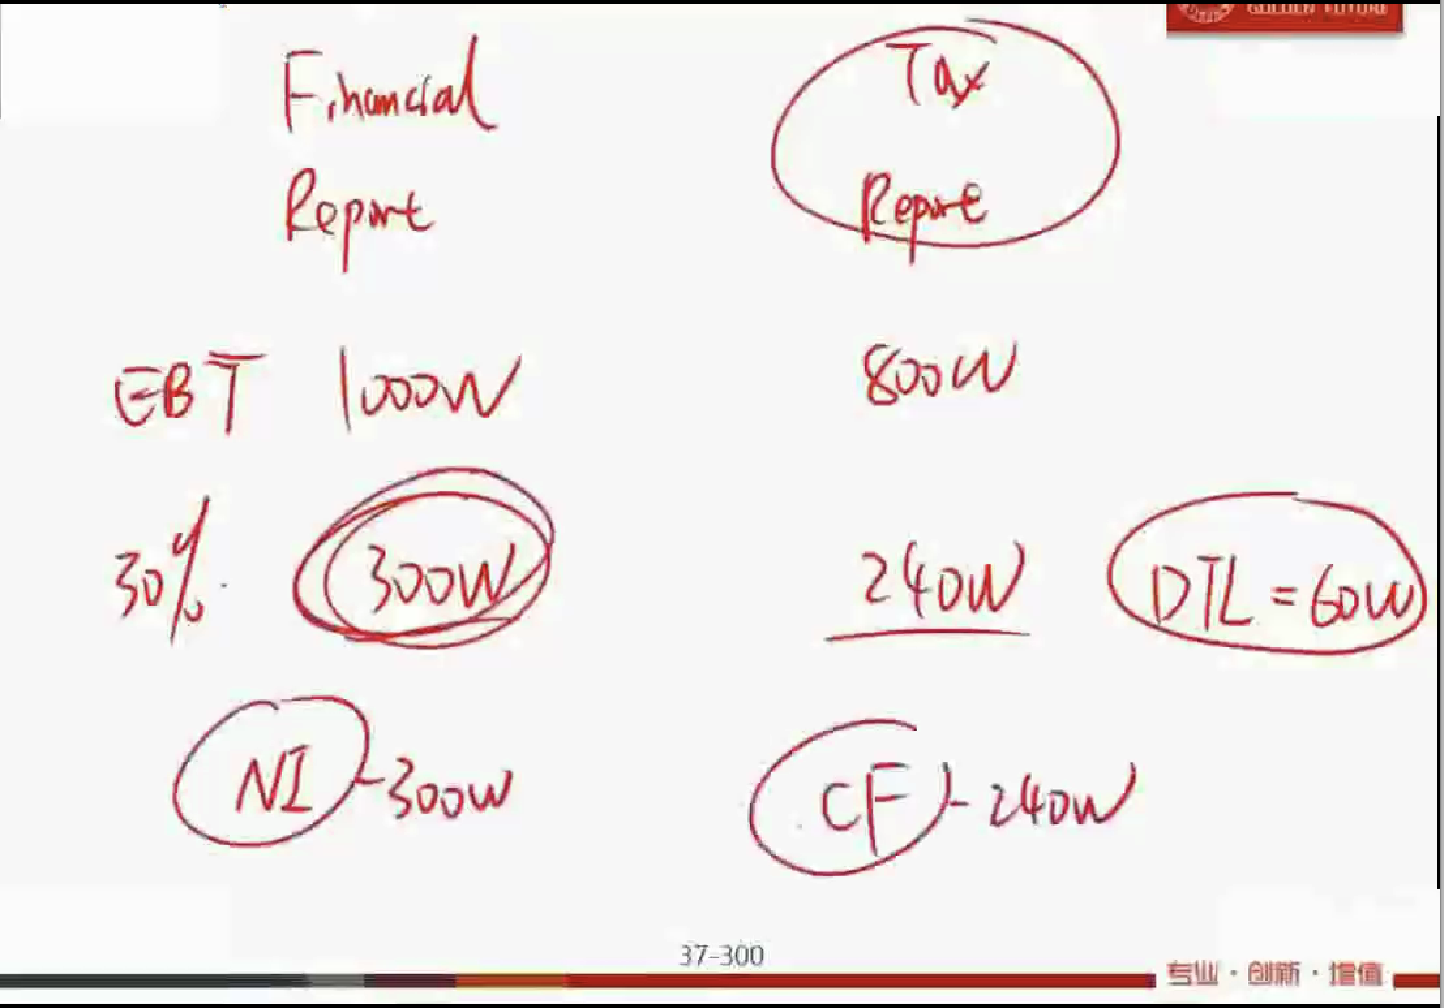 GOLDEN FUTURE
Financial
Report
Tax
Report
EBT 1000W 800W
30% 300W 240W DTL = 60W
NI -300W CF -240W
37-300
专业·创新·增值